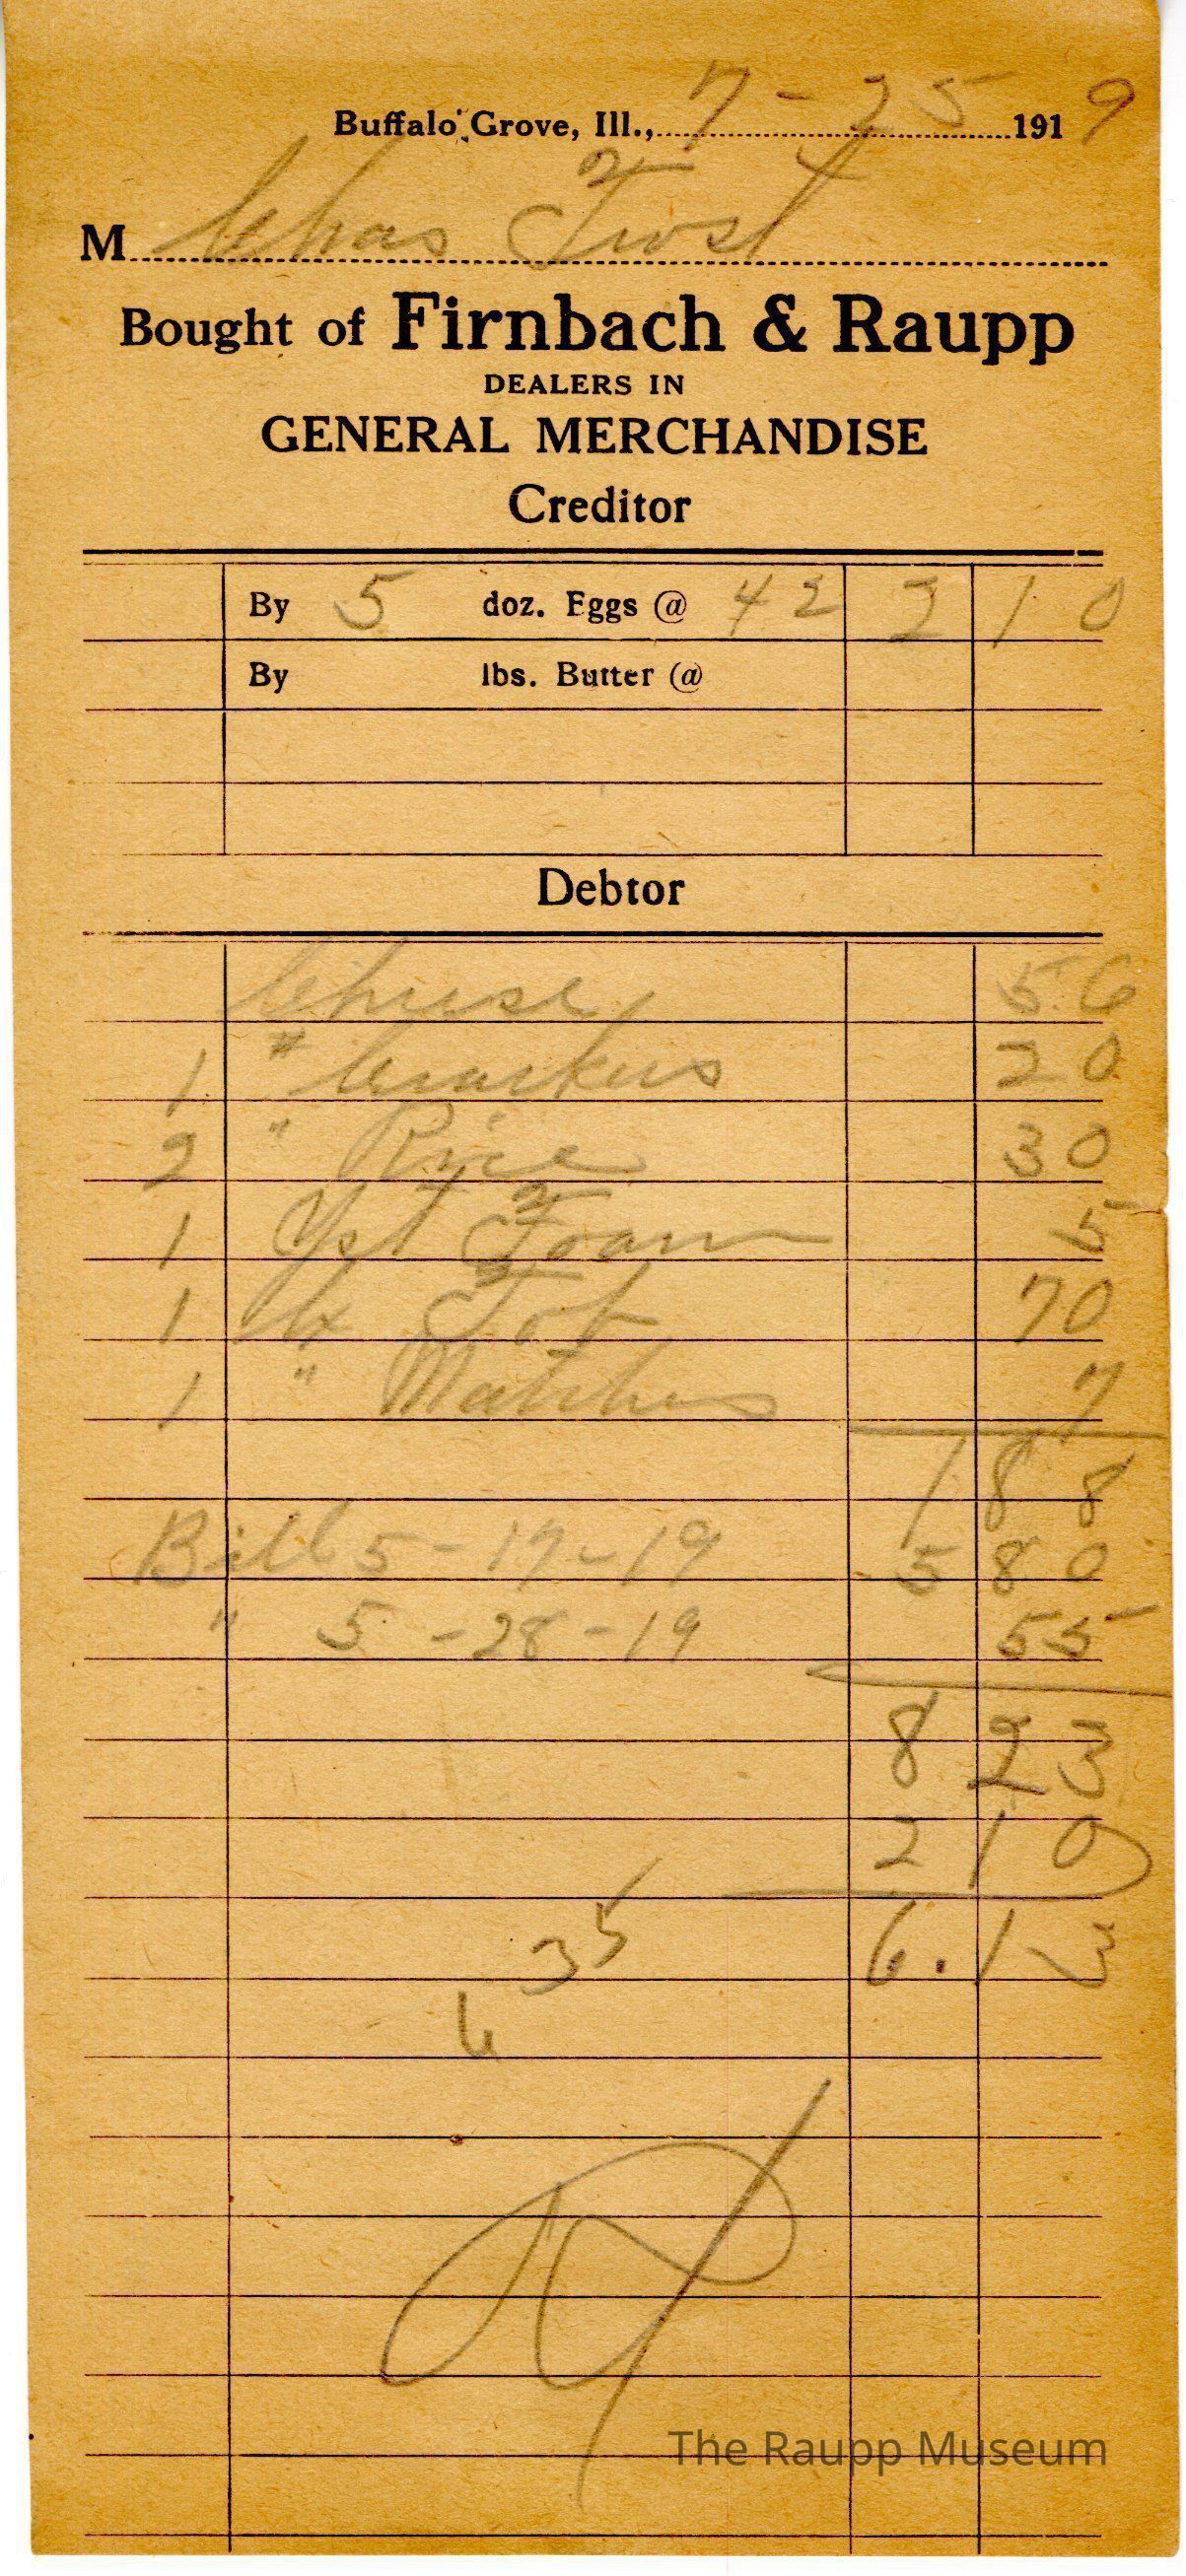 Buffalo Grove, Ill., 7 - 25 1919
M Chas Frost
Bought of Firnbach & Raupp
DEALERS IN
GENERAL MERCHANDISE
Creditor
By 5 doz. Eggs @ 42 2 10
By lbs. Butter @
Debtor
Cheese 56
1 # Crackers 20
2 " Rice 30
1 Yst Foam 5
1 Bx Tob 70
1 " Matches 7
1 88
Bill 5-17-19 5 80
" 5-28-19 55
8 23
2 10
35 6.13
6
The Raupp Museum